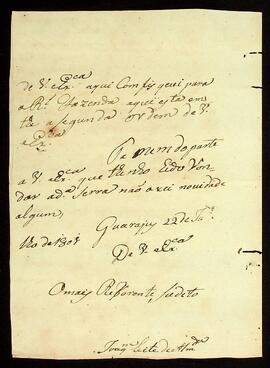 de V. Exca aqui Comfisquei para
a Rl. Fazenda aqui está em
the a segunda ordem de V.
Exca
Tãobem dou parte
a V. Exca que tenho hido Ron-
dar ad.a Serra não axei novidade
algum,
Guarajus 22 de Ja.
nro de 1801
De V. Exca
O mais Referente, Sudito
Joaqm Leite de Almda